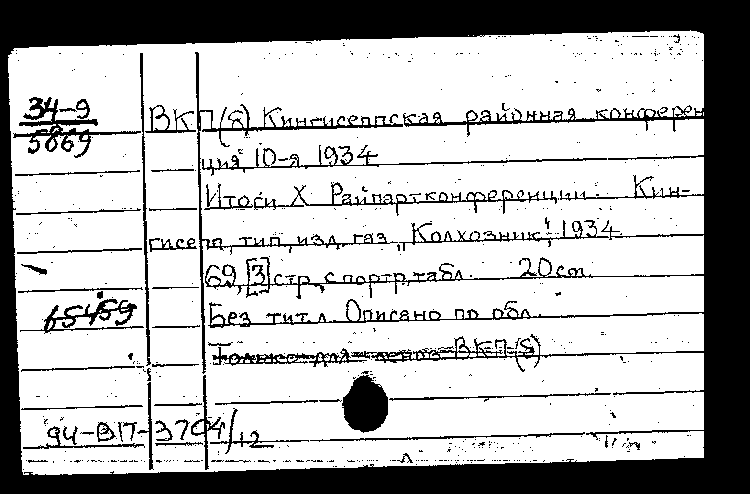 34-9
5869
ВКП(б) Кингисеппская районная конферен
ция, 10-я, 1934
Итоги X Райпартконференции. Кин-
гисепп, тип. изд. газ. „Колхозник", 1934
69, [3] стр. с портр. табл. 20 cm.
65459
Без тит. л. Описано по обл.
Только для ВКП(б)
94-ВП-3704/12